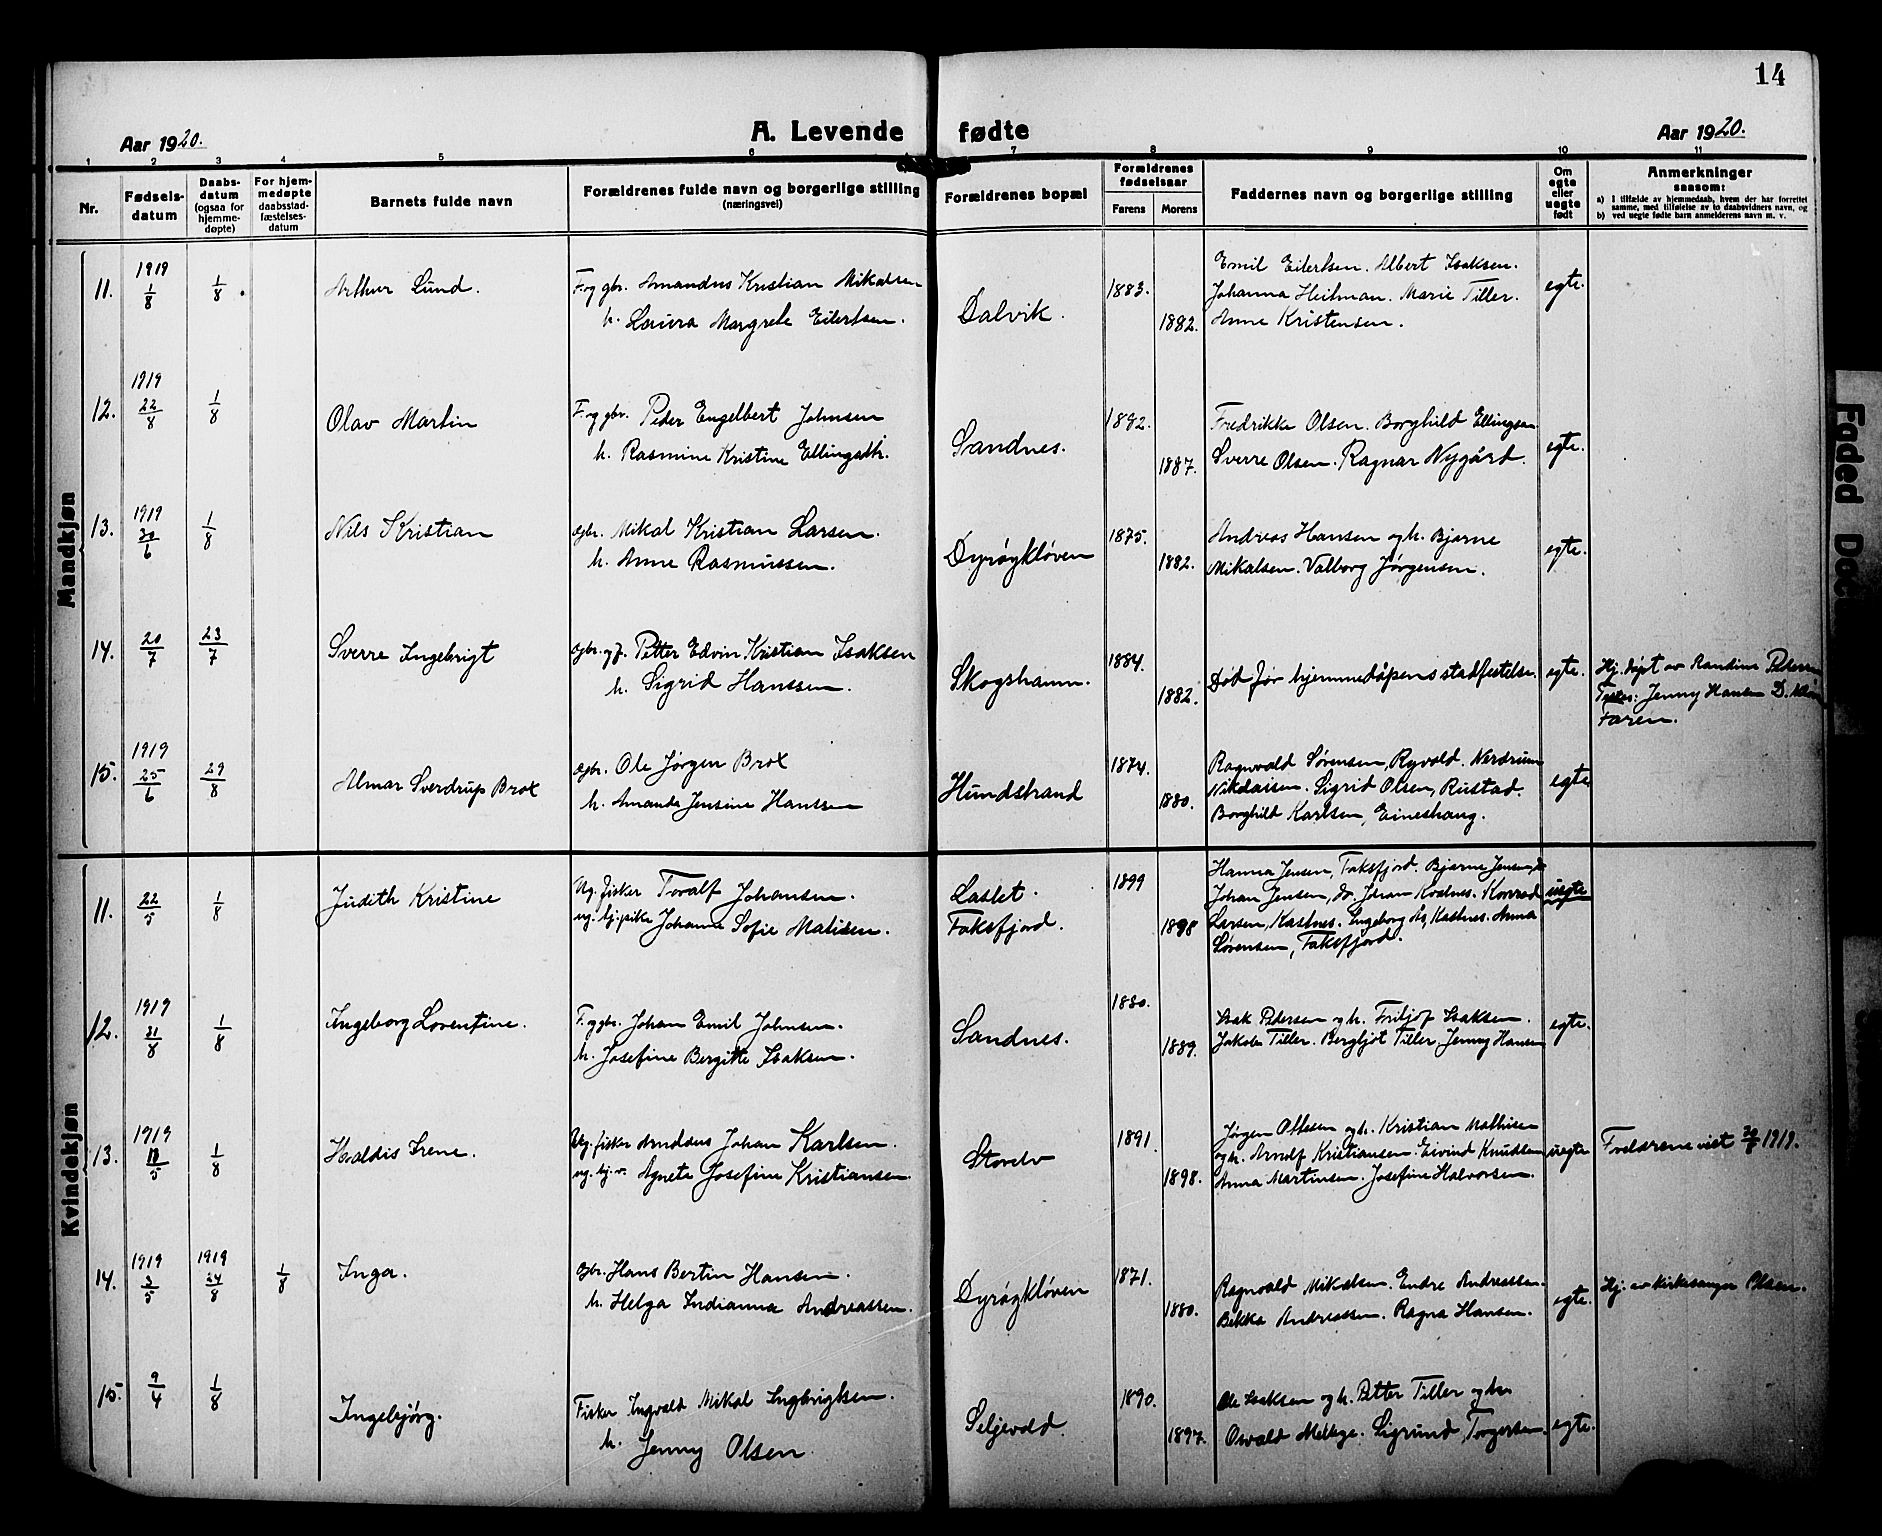 14
Aar 1920.
A. Levende fødte
Aar 1920.
1 2 3 4 5 6 7 8 9 10 11
Nr.
Fødsels-
datum
Daabs-
datum
(ogsaa for
hjemme-
døpte)
For hjem-
medøpte
daabsstad-
fæstelses-
datum
Barnets fulde navn
Forældrenes fulde navn og borgerlige stilling
(næringsvei)
Forældrenes bopæl
Forældrenes
fødselsaar
Farens Morens
Faddernes navn og borgerlige stilling
Om
egte
eller
uegte
født
Anmerkninger
saasom:
a) I tilfælde av hjemmedaab, hvem der har forrettet
samme, med tilføielse av to daabsvidners navn, og
b) ved uegte fødte barn anmelderens navn m. v.
Mandkjøn
11. 1919 1/8 1/8 Arthur Lund.
F. og gbr. Amandus Kristian Mikalsen
h. Laura Margrete Eilertsen.
Dalvik.
1883.
1882.
Emil Eilertsen. Albert Isaksen.
Johanna Heitman. Marie Tiller.
Anne Kristensen.
egte.
12. 1919 22/8 1/8 Olav Martin
F. og gbr. Peder Engelbert Johnsen
h. Rasmine Kristine Ellingsdtr.
Sandnes.
1892.
1887.
Fredrikke Olsen. Borghild Ellingsen
Sverre Olsen. Ragnar Nygård.
egte.
13. 1919 30/6 1/8 Nils Kristian
Gbr. Mikal Kristian Larsen.
h. Anne Rasmussen.
Dyrøykløven
1875.
1882.
Andreas Hansen og h. Bjarne
Mikalsen. Valborg Jørgensen.
egte.
14. 20/7 23/7 Sverre Ingebrigt
Gbr. og f. Petter Edvin Kristian Isaksen
h. Sigrid Hanssen.
Skogshamn.
1884.
1882.
Død før hjemmedåpens stadfestelse.
egte.
Hj. døpt av Randine
Jenny Hansen
Faren.
15. 1919 25/6 29/8 Almar Sverdrup Brox
Gbr. Ole Jørgen Brox
h. Amanda Jensine Hanssen
Hundstrand
1874.
1880.
Ragnvald Sørensen, Ryvold. Nerdrum
Nikolaisen. Sigrid Olsen, Rustad.
Borghild Karlsen, Eineshaug.
egte
Kvindekjøn
11. 22/5 1/8 Judith Kristine
Ug. fisker Toralf Johansen.
ug. tj.pike Johanna Sofie
Laslet.
Faksfjord.
1899
1898
Hanna Jensen, Faksfjord. Bjarne Jensen,
Johan Jensen, do. Johan Kastnes. Konrad
Larsen, Kastnes. Ingeborg Ås, Kastnes. Anna
Sørensen, Faksfjord.
uegte
12. 1919 31/8 1/8 Ingeborg Lorentine.
F. og gbr. Johan Emil Johnsen.
h. Josefine Bergitte Isaksen.
Sandnes.
1880.
1889.
Isak Pedersen og h. Fritjof Isaksen.
Jakob Tiller. Bergljot Tiller. Jenny Hansen
egte.
13. 1919 18/5 1/8 Haldis Irene.
Ug. fisker Amandus Johan Karlsen.
ug. tj. Agnete Josefine Kristiansen.
Storelv
1891.
1898.
Jørgen Ottesen og h. Kristian Mathisen
og h. Arnolf Kristiansen. Eivind Knudsen
Anna Martinsen. Josefine Halvorsen.
uegte
Foreldrene viet 1919.
14. 1919 3/5 1919 24/8 1/8 Inga.
Gbr. Hans Bertin Hansen.
h. Helga Indianna Andreassen.
Dyrøykløven
1871.
1880.
Ragnvald Mikalsen. Endre Andreassen.
Bekka Andreassen. Ragna Hansen.
egte.
Hj. av kirkesanger Olsen.
15. 9/4 1/8 Ingebjørg.
Fisker Ingvald Mikal Ingbrigtsen.
h. Jenny Olsen.
Seljevold.
1890.
1897.
Ole Isaksen og h. Petter Tiller og h.
Osvald Sigrund Torgersen.
egte.
Faded Doc